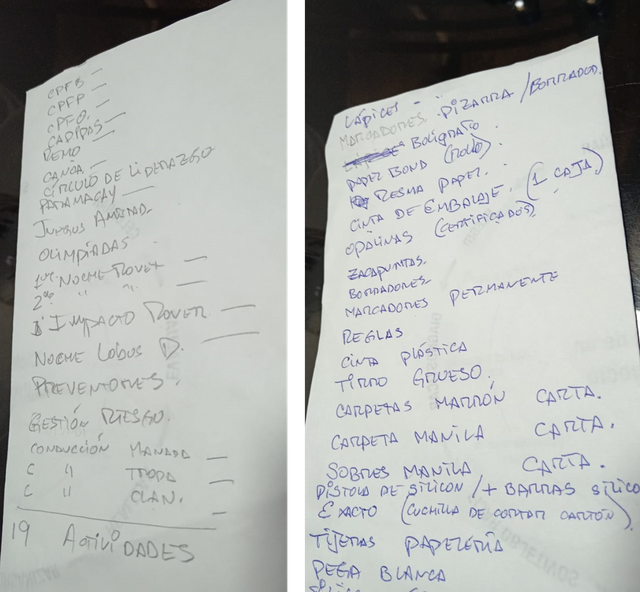 CPFB —
CPFP —
CPFO. —
CADIPAS —
REMO —
CANOA —
CÍRCULO DE LIDERAZGO
PATAMACAY —
JUEGOS AMISTAD.
OLIMPIADAS
1er NOCHE ROVER —
2da " " —
1 IMPACTO ROVER —
NOCHE LOBOS D. —
PREVENTORES.
GESTIÓN RIESGO.
CONDUCCIÓN MANADA —
C " TROPA —
C " CLAN. —
19 ACTIVIDADES
LÁPICES -
MARCADORES. PIZARRA / BORRADOR.
BOLÍGRAFO
PAPEL BOND (ROLLO).
RESMA PAPEL.
CINTA DE EMBALAJE. (1 CAJA)
OPALINAS (CERTIFICADOS)
SACAPUNTAS.
BORRADORES.
MARCADORES PERMANENTE
REGLAS
CINTA PLÁSTICA
TIRRO GRUESO.
CARPETAS MARRÓN CARTA.
CARPETA MANILA CARTA.
SOBRES MANILA CARTA.
PISTOLA DE SILICON / + BARRAS SILICO
EXACTO (CUCHILLA DE CORTAR CARTÓN)
TIJERAS PAPELERÍA
PEGA BLANCA